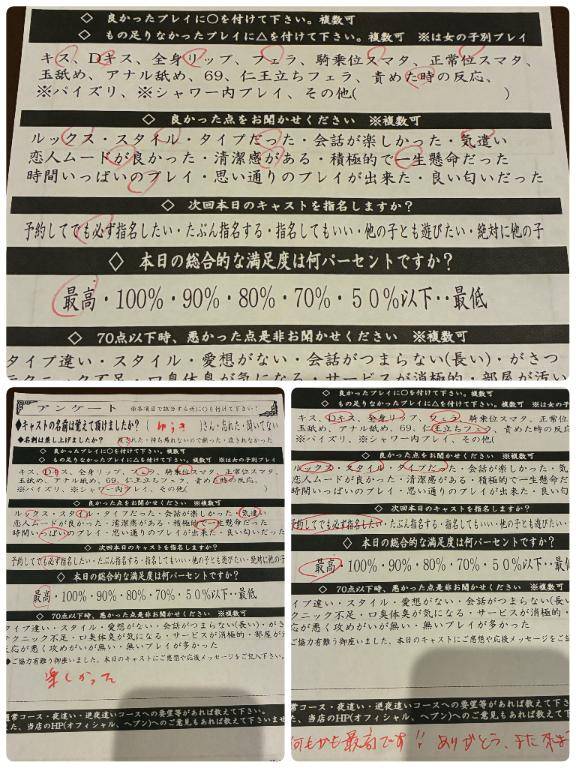 ◇ 良かったプレイに〇を付けて下さい。複数可
◇ もの足りなかったプレイに△を付けて下さい。複数可 ※は女の子別プレイ
キス、Dキス、全身リップ、フェラ、騎乗位スマタ、正常位スマタ、
玉舐め、アナル舐め、69、仁王立ちフェラ、責めた時の反応、
※パイズリ、※シャワー内プレイ、その他( )
◇ 良かった点をお聞かせください ※複数可
ルックス・スタイル・タイプだった・会話が楽しかった・気遣い
恋人ムードが良かった・清潔感がある・積極的で一生懸命だった
時間いっぱいのプレイ・思い通りのプレイが出来た・良い匂いだった
◇ 次回本日のキャストを指名しますか?
予約してでも必ず指名したい・たぶん指名する・指名してもいい・他の子とも遊びたい・絶対に他の子
◇ 本日の総合的な満足度は何パーセントですか?
最高・100%・90%・80%・70%・50%以下・・最低
◇ 70点以下時、悪かった点是非お聞かせください ※複数可
タイプ違い・スタイル・愛想がない・会話がつまらない(長い)・がさつ
テクニック不足・口臭体臭が気になる・サービスが消極的・部屋が汚い
アンケート ※各項目で該当する所に〇を付けて下さい!
◆キャストの名前は覚えて頂けましたか? ( ゆうき )さん・忘れた・聞いてない
◆名刺は差し上げましたか?
◇ 良かったプレイに〇を付けて下さい。複数可
◇ もの足りなかったプレイに△を付けて下さい。複数可 ※は女の子別プレイ
キス、Dキス、全身リップ、フェラ、騎乗位スマタ、正常位スマタ、
玉舐め、アナル舐め、69、仁王立ちフェラ、責めた時の反応、
※パイズリ、※シャワー内プレイ、その他(
◇ 良かった点をお聞かせください ※複数可
ルックス・スタイル・タイプだった・会話が楽しかった・気遣い
恋人ムードが良かった・清潔感がある・積極的で一生懸命だった
時間いっぱいのプレイ・思い通りのプレイが出来た・良い匂いだった
◇ 次回本日のキャストを指名しますか?
予約してでも必ず指名したい・たぶん指名する・指名してもいい・他の子とも遊びたい・絶対に他の子
◇ 本日の総合的な満足度は何パーセントですか?
最高・100%・90%・80%・70%・50%以下・・最低
◇ 70点以下時、悪かった点是非お聞かせください ※複数可
タイプ違い・スタイル・愛想がない・会話がつまらない(長い)・が
テクニック不足・口臭体臭が気になる・サービスが消極的・部屋が
応が悪く攻めがいが無い・無いプレイが多かった
◆ご協力有難う御座いました、本日のキャストにご感想や応援メッセージをご記入下さい。
楽しかった
通常コース・夜這い・逆夜這いコースへの要望等があれば教えて下さい。
また、当店のHP(オフィシャル、ヘブン)へのご意見もあれば教えて下さいませ
◇ 良かったプレイに〇を付けて下さい。複数可
◇ もの足りなかったプレイに△を付けて下さい。複数可 ※は女の子
キス、Dキス、全身リップ、フェラ、騎乗位スマタ、正常位スマタ、
玉舐め、アナル舐め、69、仁王立ちフェラ、責めた時の反応、
※パイズリ、※シャワー内プレイ、その他(
◇ 良かった点をお聞かせください ※複数可
ルックス・スタイル・タイプだった・会話が楽しかった・気
恋人ムードが良かった・清潔感がある・積極的で一生懸命だっ
時間いっぱいのプレイ・思い通りのプレイが出来た・良い匂
◇ 次回本日のキャストを指名しますか?
予約してでも必ず指名したい・たぶん指名する・指名してもいい・他の子とも遊びたい・
◇ 本日の総合的な満足度は何パーセントですか?
最高・100%・90%・80%・70%・50%以下・・最低
◇ 70点以下時、悪かった点是非お聞かせください ※複数可
イプ違い・スタイル・愛想がない・会話がつまらない(長
クニック不足・口臭体臭が気になる・サービスが消極的・
応が悪く攻めがいが無い・無いプレイが多かった
ご協力有難う御座いました、本日のキャストにご感想や応援メッセージをご
常コース・夜這い・逆夜這いコースへの要望等があれば教えて下さ
た、当店のHP(オフィシャル、ヘブン)へのご意見もあれば教えて
何もかも最高です!! ありがとう、また来ま